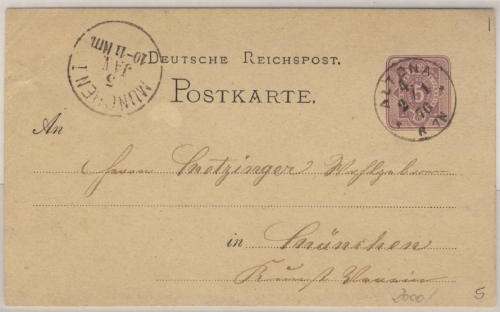 DEUTSCHE REICHSPOST.
POSTKARTE.
MÜNCHEN I
5
JAN
10-11 NM.
ALTONA
2 1
5
An
Herrn Metzinger Wohlgeb.
in München
Kunst Verein
2000/
5